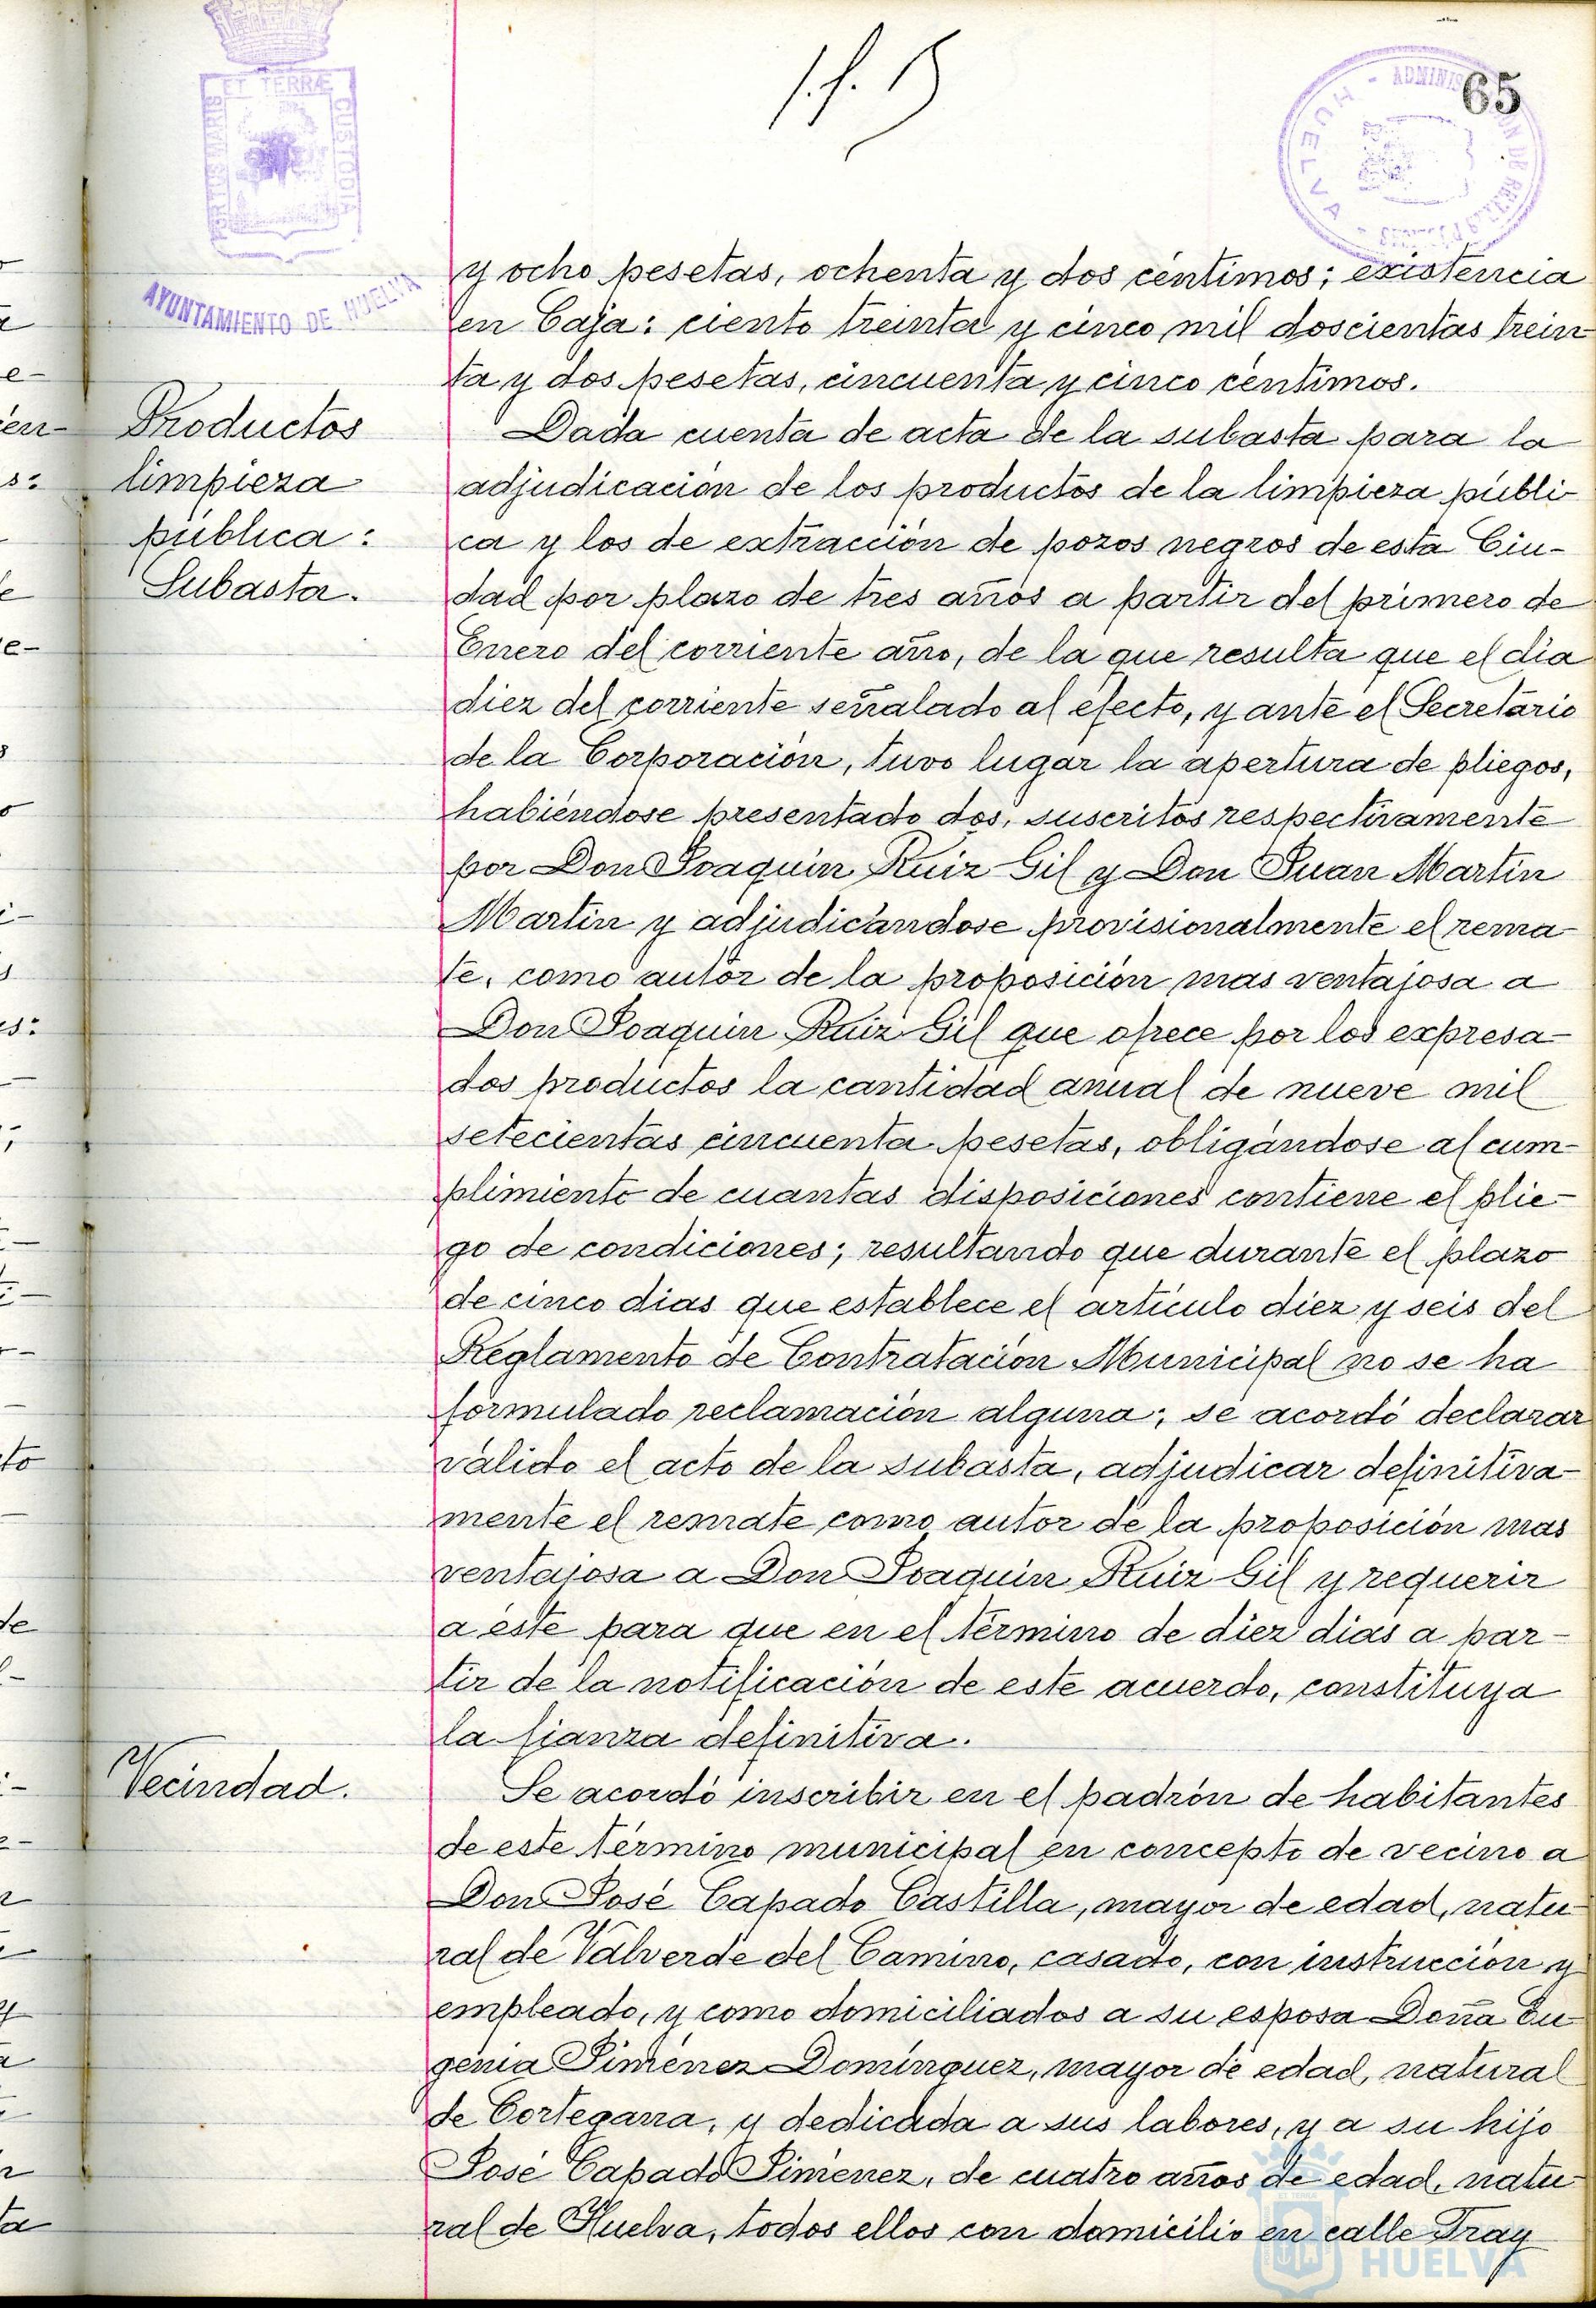 65
ET TERRÆ
PORTUS MARIS
CUSTODIA
AYUNTAMIENTO DE HUELVA
HUELVA
y ocho pesetas, ochenta y dos céntimos; existencia
en Caja: ciento treinta y cinco mil doscientas trein
ta y dos pesetas, cincuenta y cinco céntimos.
Productos
limpieza
pública:
Subasta.
Dada cuenta de acta de la subasta para la
adjudicación de los productos de la limpieza públi-
ca y los de extracción de pozos negros de esta Ciu-
dad por plazo de tres años a partir del primero de
Enero del corriente año, de la que resulta que el dia
diez del corriente señalado al efecto, y ante el Secretario
de la Corporación, tuvo lugar la apertura de pliegos,
habiéndose presentado dos, suscritos respectivamente
por Don Joaquin Ruiz Gil y Don Juan Martin
Martin y adjudicándose provisionalmente el rema
te, como autor de la proposición mas ventajosa a
Don Joaquin Ruiz Gil que ofrece por los expresa-
dos productos la cantidad anual de nueve mil
setecientas cincuenta pesetas, obligándose al cum-
plimiento de cuantas disposiciones contiene el plie-
go de condiciones; resultando que durante el plazo
de cinco dias que establece el artículo diez y seis del
Reglamento de Contratación Municipal no se ha
formulado reclamación alguna; se acordó declarar
válido el acto de la subasta, adjudicar definitiva-
mente el remate como autor de la proposición mas
ventajosa a Don Joaquin Ruiz Gil y requerir
a éste para que en el término de diez dias a par-
tir de la notificación de este acuerdo, constituya
la fianza definitiva.
Vecindad.
Se acordó inscribir en el padrón de habitantes
de este término municipal en concepto de vecino a
Don José Capado Castilla, mayor de edad, natu-
ral de Valverde del Camino, casado, con instrucción y
empleado, y como domiciliados a su esposa Doña Eu
genia Jiménez Domínguez, mayor de edad, natural
de Cortegana, y dedicada a sus labores, y a su hijo
José Capado Jiménez, de cuatro años de edad, natu-
ral de Huelva, todos ellos con domicilio en calle Fray
HUELVA